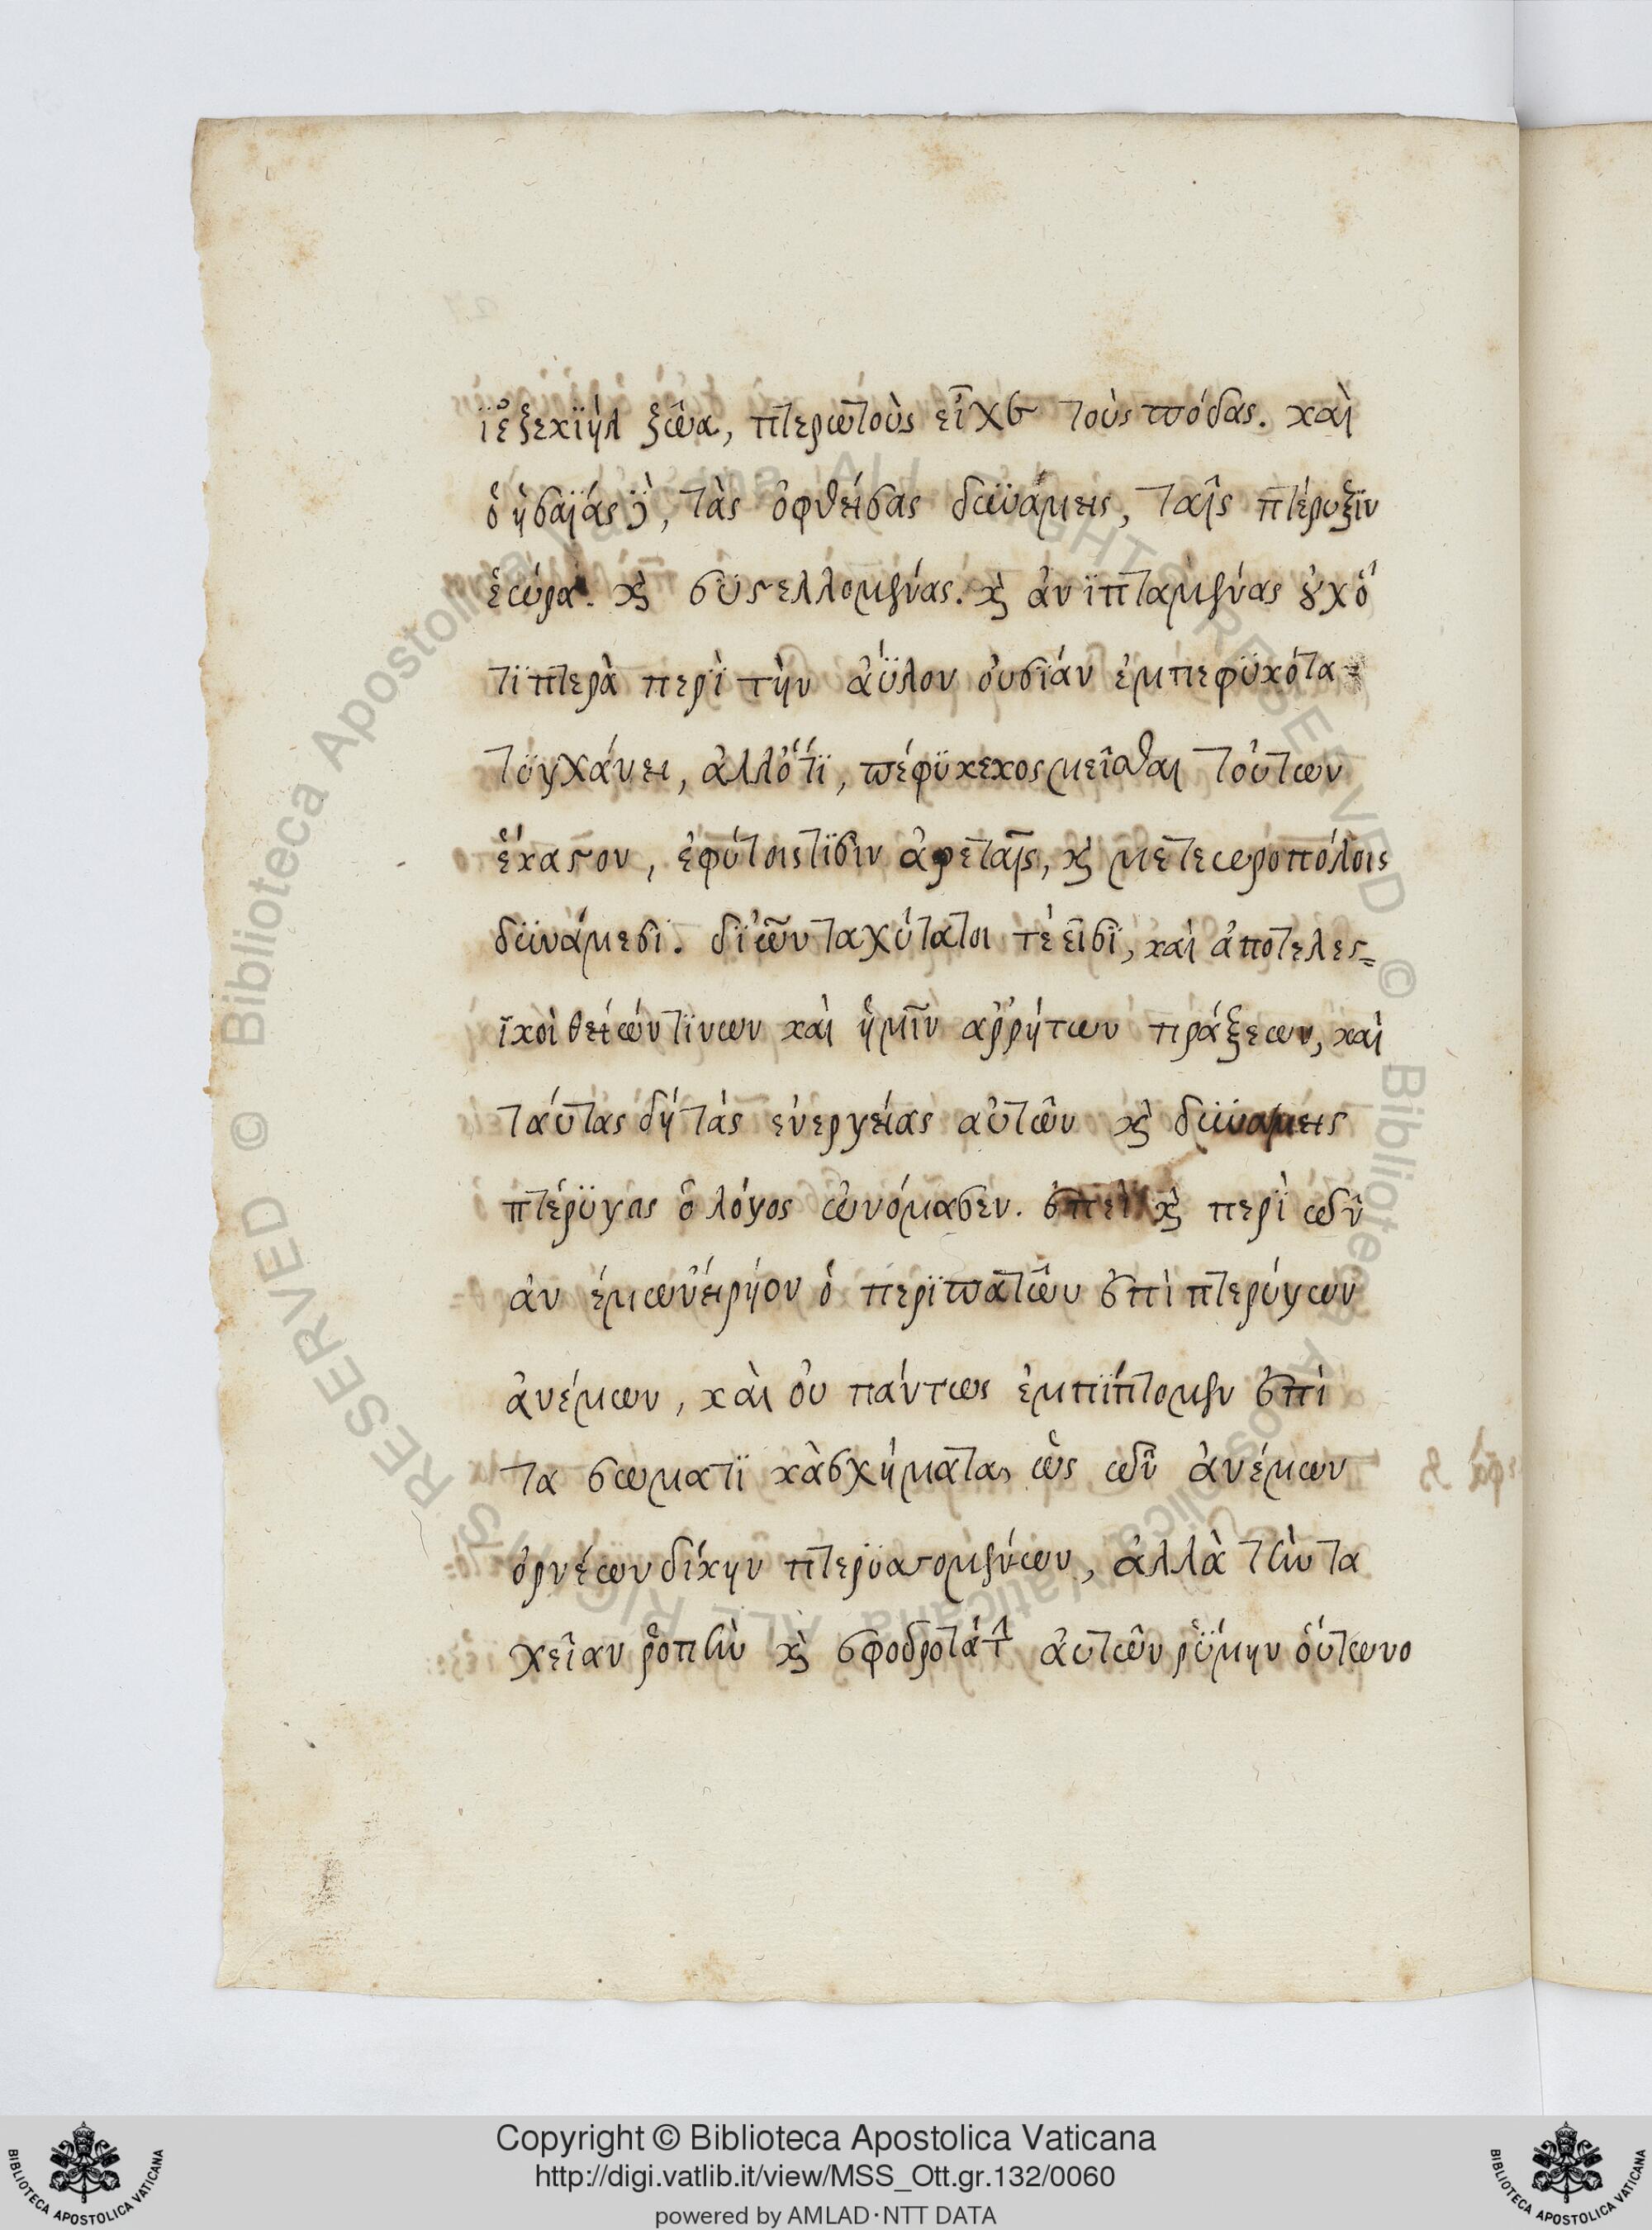 ϊεζεκϊὴλ ζῶα, πτερωτοὺς εἶχε τοὺς πόδας. καὶ
ὁ ἡσαΐας δὲ, τὰς ὀφθείσας δυνάμεις, ταῖς πτέρυξϊν
ἑώρα. κὶ συστελλομένας. κὶ ἀνϊπταμένας οὐχ ὅ
τϊ πτερὰ περὶ τὴν ἄϋλον οὐσϊάν ἐμπεφϋκότα
τϋγχάνει, ἀλλ' ὅτϊ, πέφϋκε κοσμεῖσθαι τούτων
ἕκαστον, ἐφύτοις τϊσιν ἀρεταῖς, κὶ μετεωροπόλοις
δϋνάμεσϊ. δϊ ὧν ταχύτατοι τέ εἰσϊ, καὶ ἀποτελεσ=
τϊκοὶ θείων τϊνων καὶ ἡμῖν αρρήτων πράξεων, καὶ
ταύτας δή τὰς ενεργείας αὐτῶν κὶ δϋναμεις
πτέρϋγας ὁ λόγος ὠνόμασεν. ἐπεὶ κὶ περὶ τῶν
ἀνέμων εἴρηον ὁ περϊπατῶν ἐπὶ πτερύγων
ἀνέμων, καὶ οὐ πάντως ἐμπϊπτομεν ἐπὶ
τα σωματϊκὰ σχήματα, ὡς τῶν ἀνέμων
ὀρνέων δίκην πτερϋσσομένων, ἀλλὰ τὴν τα
χεῖαν ῥοπὴν κὶ σφοδροτάτην αὐτῶν ῥϋμην οὕτω νο
Copyright © Biblioteca Apostolica Vaticana
http://digi.vatlib.it/view/MSS_Ott.gr.132/0060
powered by AMLAD·NTT DATA